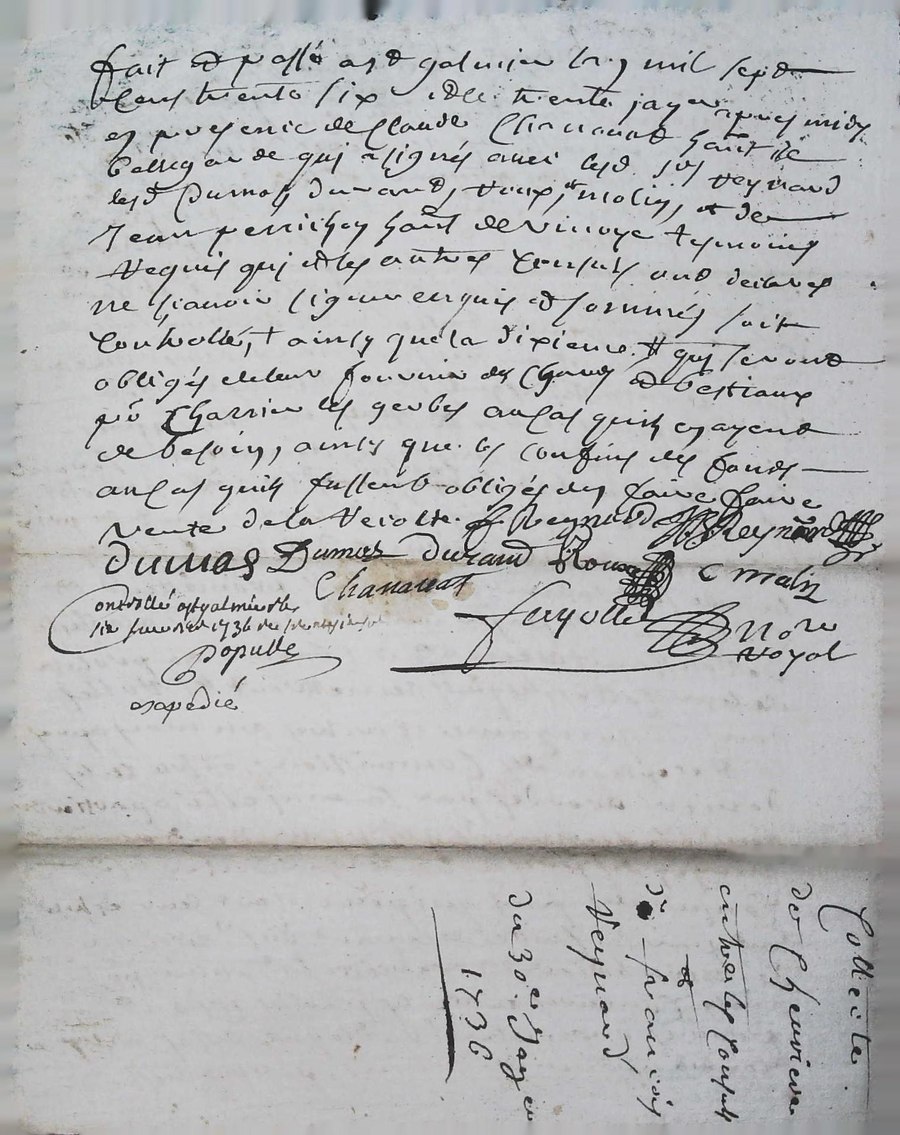 fait et passé a st galmier lan mil sept
cens trente six et le trente janer apres midy
en presence de Claude Chanavat hant de
bellegarde qui a signés avec lesd srs Reynaud
lesd Dumas, durand, Roux, molin, et de
Jean perrichon hant de viricye tesmoins
Requis qui et les autres Consuls ont declarés
ne sçavoir signer enquis et sommés soit
Controllé, + ainsy que la dixieme # qui seront
obligés de leur fournir des Chars et bestiaux
pr Charrier les gerbes au cas quils en ayent
de besoin, ainsy que les confins des fonds
au cas quils fussent obligés den faire faire
vente de la Recolte. f Reynaud Reynaud
dumas Dumas durand Roux C malin
Chanavat
Controllé a st galmier le
1736
Fayolle
Populle
Noyol
expedié
Collecte
de Chevrieres
entre les Consuls
et françois
Reynaud
du 30e Janer
1736